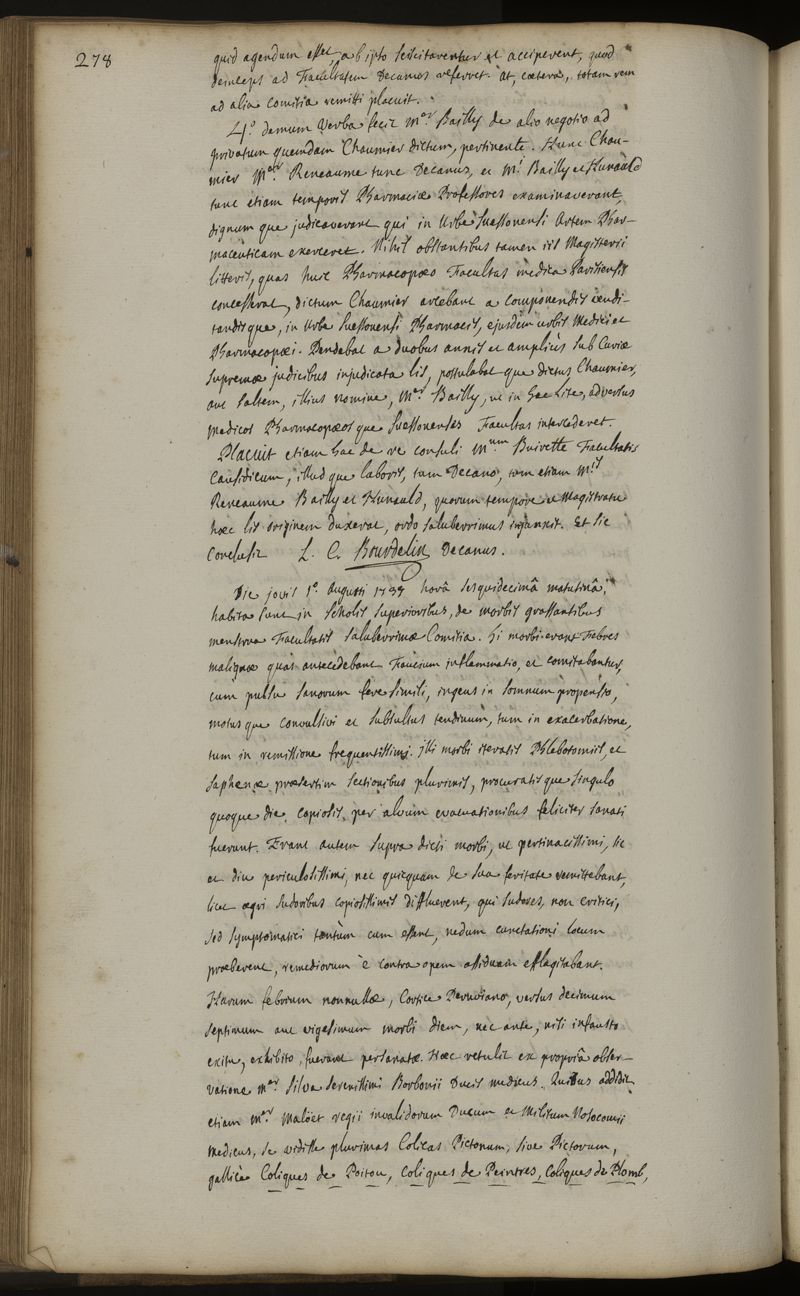 278
quid agendum esset, ab ipso sciscitarentur et acciperent, quod
deinceps ad Facultatem Decanus referret. at, cætera, totam rem
ad alia comitia remitti placuit.
4.° demum verba fecit M.er Bailly de alio negotio ad
privatum quemdam Chaumier dictum, pertinente. Hunc Chau-
mier M.er Reneaume tunc Decanus, et M.i Bailly et Hunauld
tunc etiam temporis Pharmaciæ Professores examinaverant,
dignum que judicaverant qui in Urbe Suessonensi Artem Phar-
maceuticam exerceret. Nihil obstantibus tamen iis Magisterii
litteris, quas huic Pharmacopœo Facultas medica Parisiensis
concesserat, dictum Chaumier arcebant a componendis vendi-
tandisque, in Urbe Suessonensi Pharmacis, ejusdem urbis Medici et
Pharmacopœi. Pendebat a duobus annis et amplius sub Curiæ
Supremæ judicibus injudicata lis, postulabat que dictus Chaumier,
aut saltem, illius nomine, M.er Bailly, ut in hac Lite, adversus
medicos Pharmacopœos que Suessonenses Facultas intercederet.
Placuit etiam hac de re consuli M.um Buirette Facultatis
Causidicum, illud que laboris, tum Decano, tum etiam M.is
Reneaume Bailly et Hunauld, quorum tempore et Magistratu
hæc lis originem duxerat, ordo saluberrimus injunxit. Et sic
Conclusit L. C. Bourdelin Decanus.
Die jovis 1.a Augusti 1737 horâ sesquidecimâ matutinâ,
habita sunt in Scholis Superioribus, de morbis grassantibus
menstrua Facultatis saluberrimæ Comitia. Hi morbi erant Febres
malignæ quas antecedebant Faucium inflammatio, et comitabantur,
cum pulsu sanorum fere simili, ingens in somnum propensio,
motus que convulsivi et subsultus tendinum, tum in exacerbatione,
tum in remissione frequentissimi. illi morbi iteratis Phlebotomiis, et
saphenæ præsertim sectionibus plurimis, procuratis que singulo
quoque die, copiosis, per alvum evacuationibus feliciter sanati
fuerunt. Erant autem supra dicti morbi, ut pertinacissimi, sic
et diu periculosissimi, nec quicquam de sua feritate remittebant,
licet ægri sudoribus copiosissimis diffluerent, qui sudores, non critici,
sed symptomatici tantùm cum essent, nedum cunctationi locum
præberent, remediorum è contra opem assiduam efflagitabant.
Harum febrium nonnullæ, Cortice Peruviano, versus decimum
septimum aut vigesimum morbi diem, nec ante, nisi infausto
exitu, exhibito, fuerunt persanatæ. Hæc retulit ex propriâ obser-
vatione M.er Silva Serenissimi Borbonii Ducis medicus. Quibus addidit
etiam M.er Maloet regii invalidorum Ducum et Militum Nosocomii
medicus, se vidisse plurimas Colicas Pictonum, sive Pictorum,
gallicè Coliques de Poitou, coliques de Peintres, Coliques de Plomb,